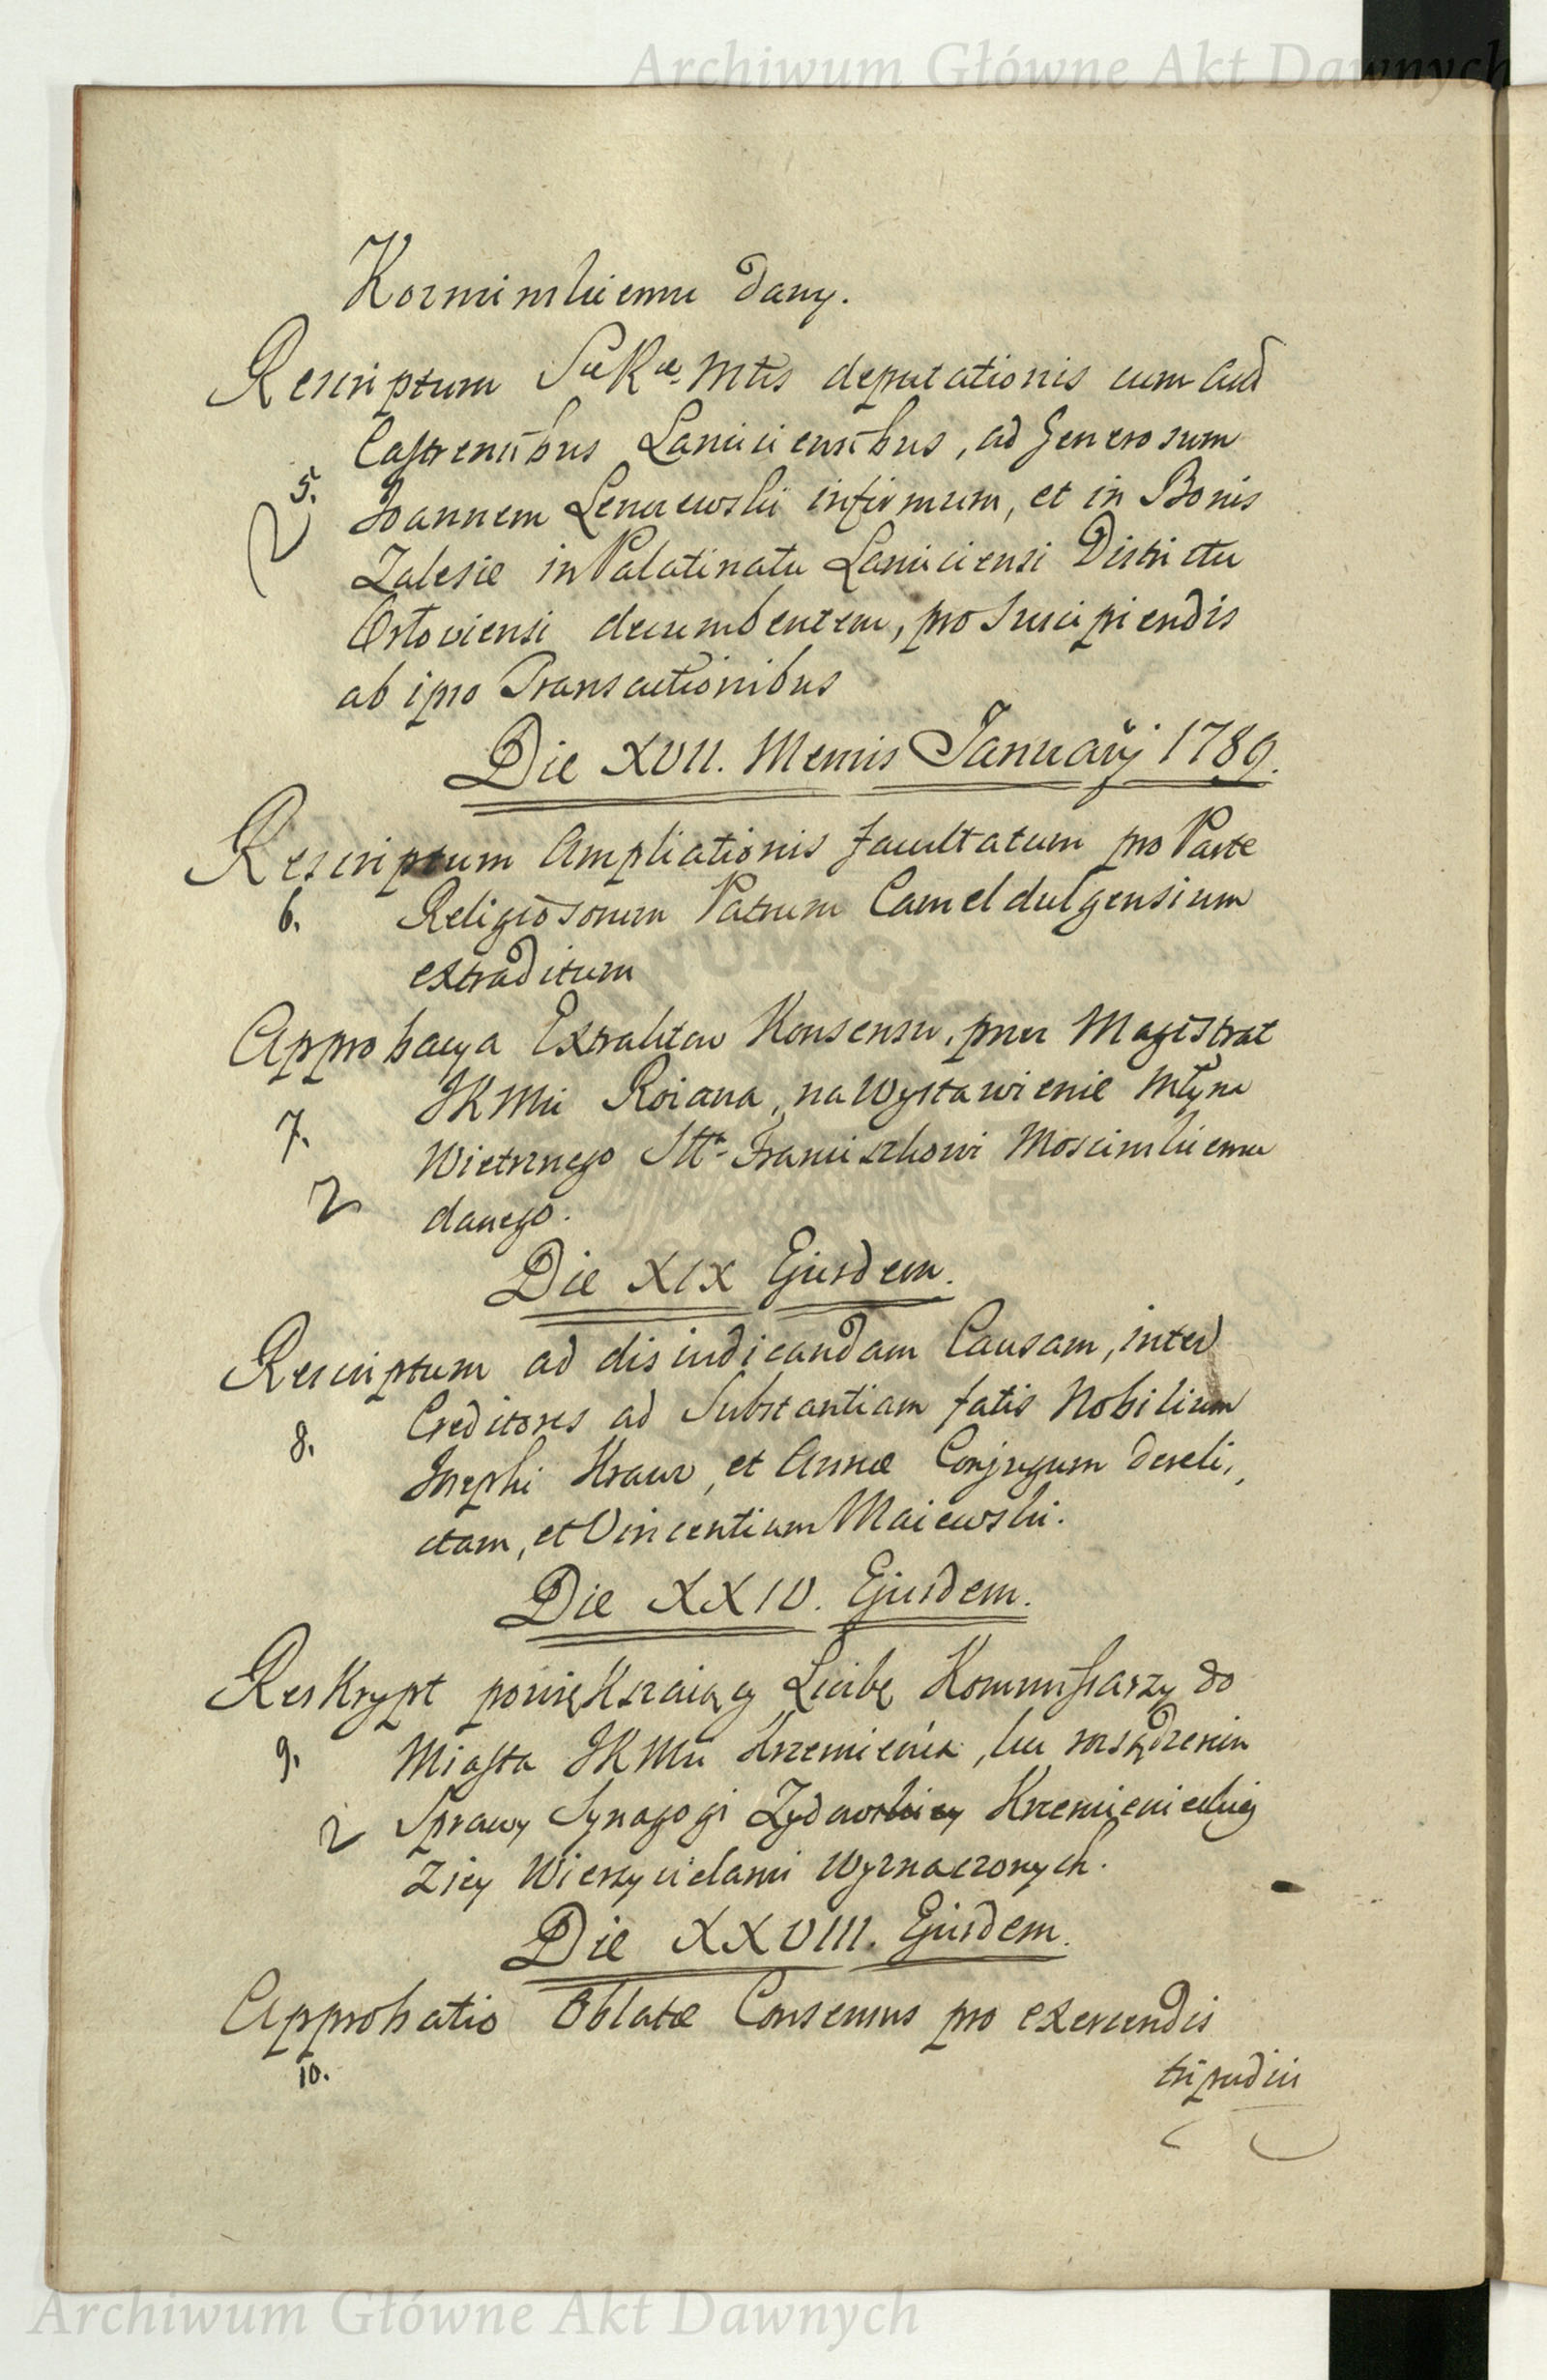 Archiwum Główne Akt Dawnych
Kozminskiemu dany.
Rescriptum Sæ Ræ Mtis deputationis cum Aud
Castrensibus Lanciciensibus, ad Generosum
5. Joannem Lenczewski infirmum, et in Bonis
Zalesie in Palatinatu Lanciciensi Districtu
Orłoviensi decumbentem, pro Suscipiendis
ab ipso Transactionibus
Die XVII. Mensis Januarÿ 1789.
Rescriptum Ampliationis facultatum pro Parte
6. Religiosorum Patrum Cameldulgensium
extraditum
Approbacya Extraktow Konsensu, przez Magistrat
JKMci Roziana, na Wystawienie Młyna
7. Wietrznego Stt. Franciszkowi Moscinskiemu
danego.
Die XIX Ejusdem.
Rescriptum ad disiudicandam Causam, inter
8. Creditores ad Substantiam fatis Nobilium
Josephi Kraus, et Annæ Conjugum dereli,,
ctam, et Vincentium Maiewski.
Die XXIV. Ejusdem.
Reskrypt powiększaiący Liczbę Kommissarzy do
9. Miasta JKMci Krzemieńca, ku rozsądzeniu
Sprawy Synagogi Zydowskiey Krzemienieckiey
z iey Wierzycielami Wyznaczonych.
Die XXVIII. Ejusdem.
Approbatio Oblatæ Consensus pro exercendis
10.
tripudiis
Archiwum Główne Akt Dawnych